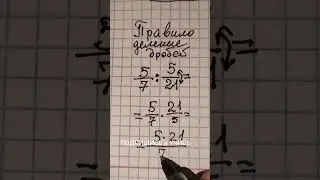 Правило
деление
дробей
5/7 : 5/21 =
= 5/7 · 21/5 =
= 5 · 21
7
ПОДПИШИСЬ И УЧИСЬ